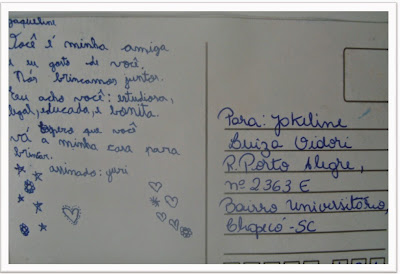 Jaqueline
Você é minha amiga
e eu gosto de você.
Nós brincamos juntos.
Eu acho você: estudiosa,
legal, educada, e bonita.
espero que você
vá a minha casa para
brincar.
assinado: yuri
Para: Jakeline
Luiza Vidori
R. Porto Alegre,
nº 2363 E
Bairro Universitório,
Chapecó-SC